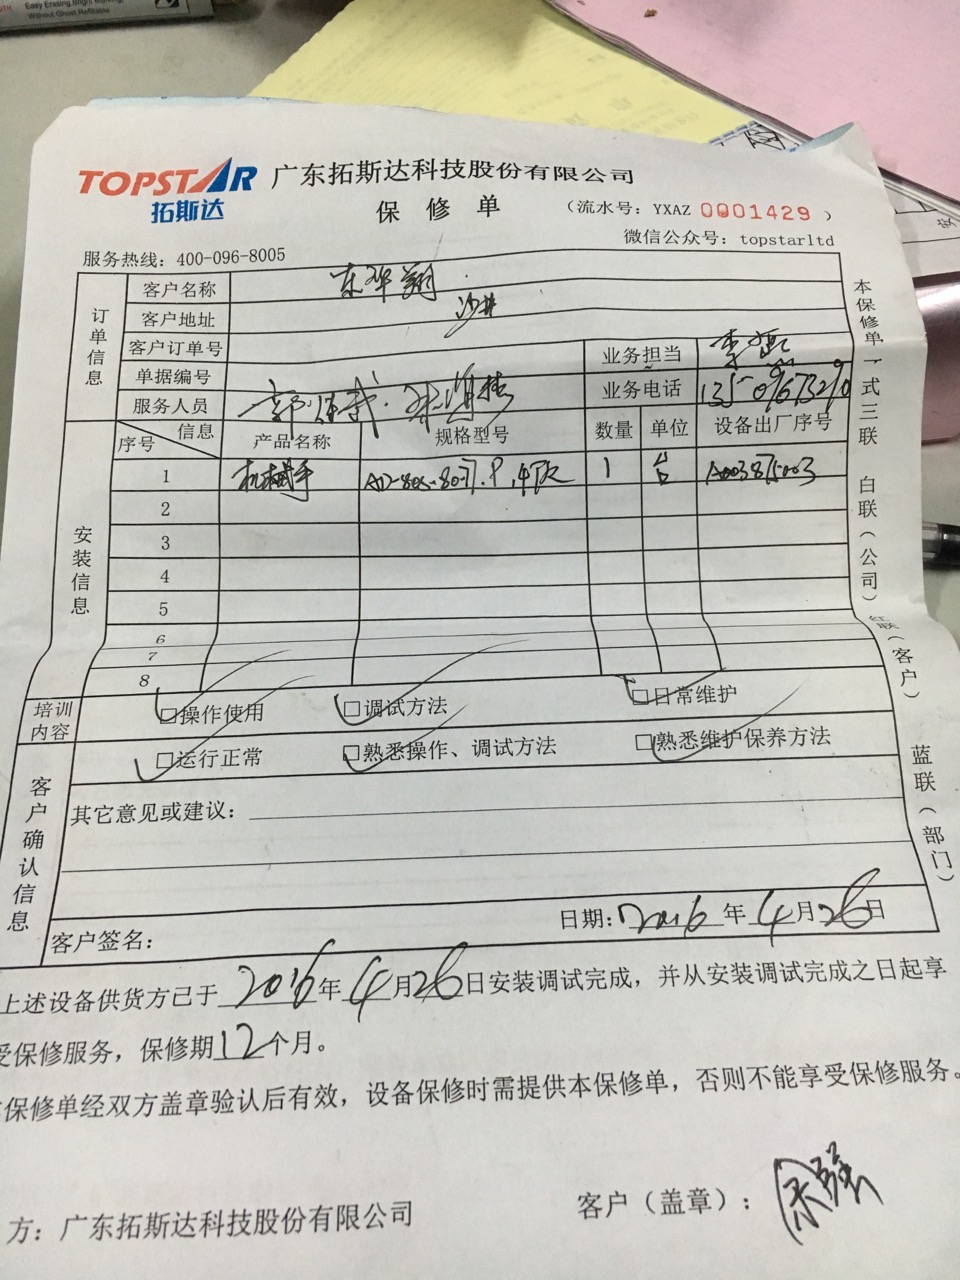 Easy Erasing, Bright Marking,
Without Ghost Refillable
TOPSTAR 广东拓斯达科技股份有限公司
拓斯达 保修单 (流水号: YXAZ 0001429)
微信公众号: topstarltd
服务热线: 400-096-8005
订单信息
客户名称 东华翔
客户地址 沙井
客户订单号
单据编号 业务担当 李
服务人员 业务电话
安装信息
序号 信息 产品名称 规格型号 数量 单位 设备出厂序号
1 机械手 1 台 A003875003
2
3
4
5
6
7
8
培训内容 □操作使用 □调试方法 □日常维护
客户确认信息
□运行正常 □熟悉操作、调试方法 □熟悉维护保养方法
其它意见或建议:
客户签名: 日期: 2016年4月26日
本保修单一式三联 白联(公司) 红联(客户) 蓝联(部门)
上述设备供货方已于2016年4月26日安装调试完成,并从安装调试完成之日起享
受保修服务,保修期12个月。
保修单经双方盖章验认后有效,设备保修时需提供本保修单,否则不能享受保修服务。
方: 广东拓斯达科技股份有限公司 客户(盖章):